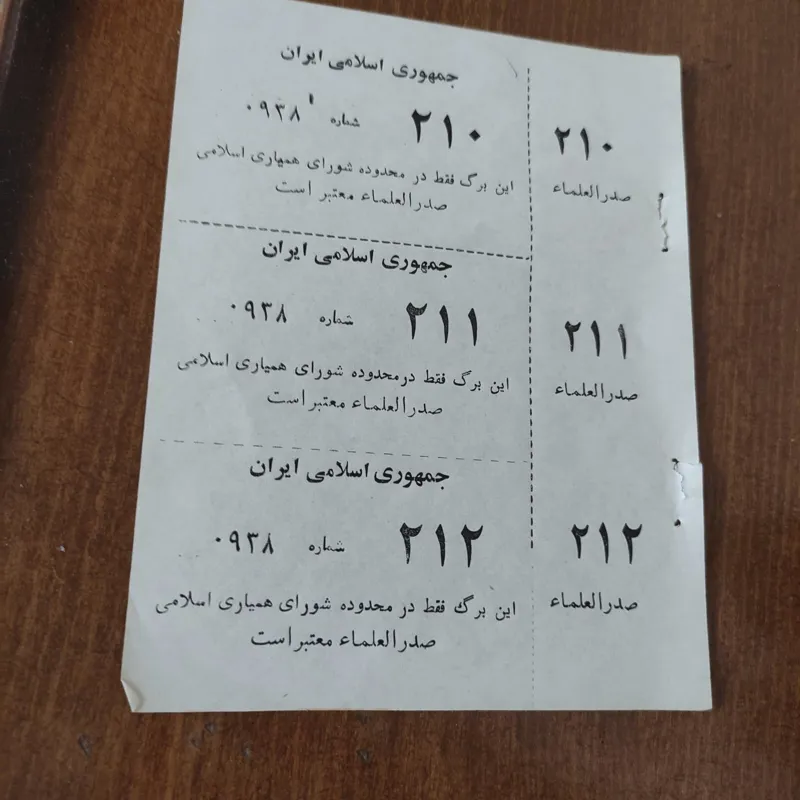 جمهوری اسلامی ایران
۲۱۰ شماره ۰۹۳۸
این برگ فقط در محدوده شورای همیاری اسلامی
صدرالعلماء معتبر است
۲۱۰
صدرالعلماء
جمهوری اسلامی ایران
۲۱۱ شماره ۰۹۳۸
این برگ فقط درمحدوده شورای همیاری اسلامی
صدرالعلماء معتبراست
۲۱۱
صدرالعلماء
جمهوری اسلامی ایران
۲۱۲ شماره ۰۹۳۸
این برگ فقط در محدوده شورای همیاری اسلامی
صدرالعلماء معتبراست
۲۱۲
صدرالعلماء